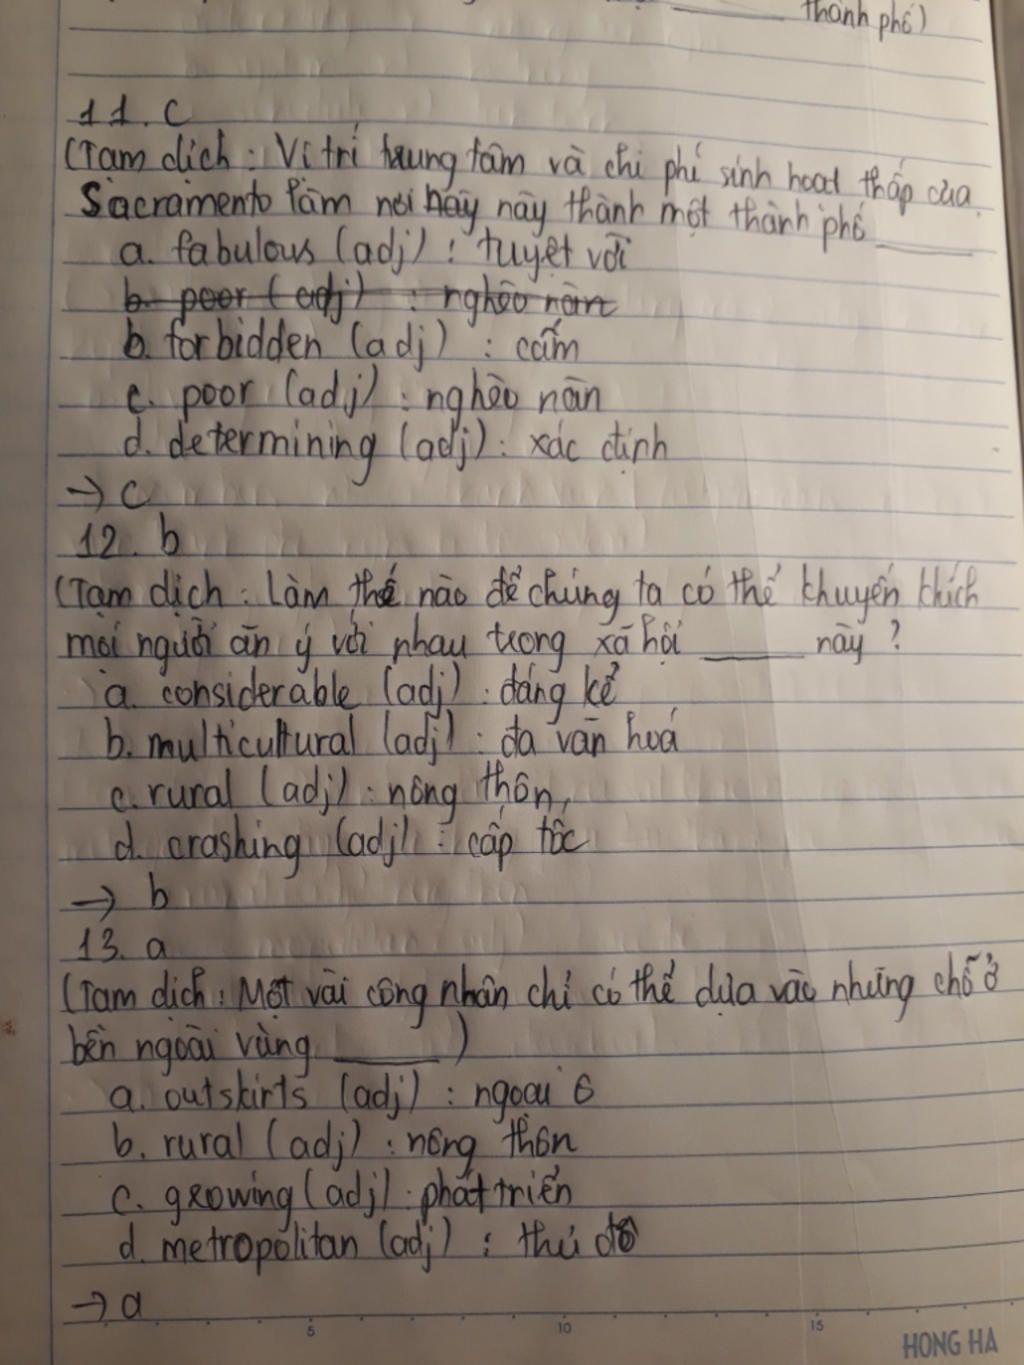 thành phố)
11. c
(Tạm dịch: Vị trí trung tâm và chi phí sinh hoạt thấp của
Sacramento làm nơi này này thành một thành phố ______
a. fabulous (adj) : tuyệt vời
b. poor (adj) : nghèo nàn
b. forbidden (adj) : cấm
c. poor (adj) : nghèo nàn
d. determining (adj) : xác định
→ c
12. b
(Tạm dịch: Làm thế nào để chúng ta có thể khuyến khích
mọi người ăn ý với nhau trong xã hội ______ này ?
a. considerable (adj) : đáng kể
b. multicultural (adj) : đa văn hoá
c. rural (adj) : nông thôn,
d. crashing (adj) : cấp tốc
→ b
13. a
(Tạm dịch: Một vài công nhân chỉ có thể dựa vào những chỗ ở
bên ngoài vùng ______ )
a. outskirts (adj) : ngoại ô
b. rural (adj) : nông thôn
c. growing (adj) : phát triển
d. metropolitan (adj) : thủ đô
→ a
5 10 15
HONG HA